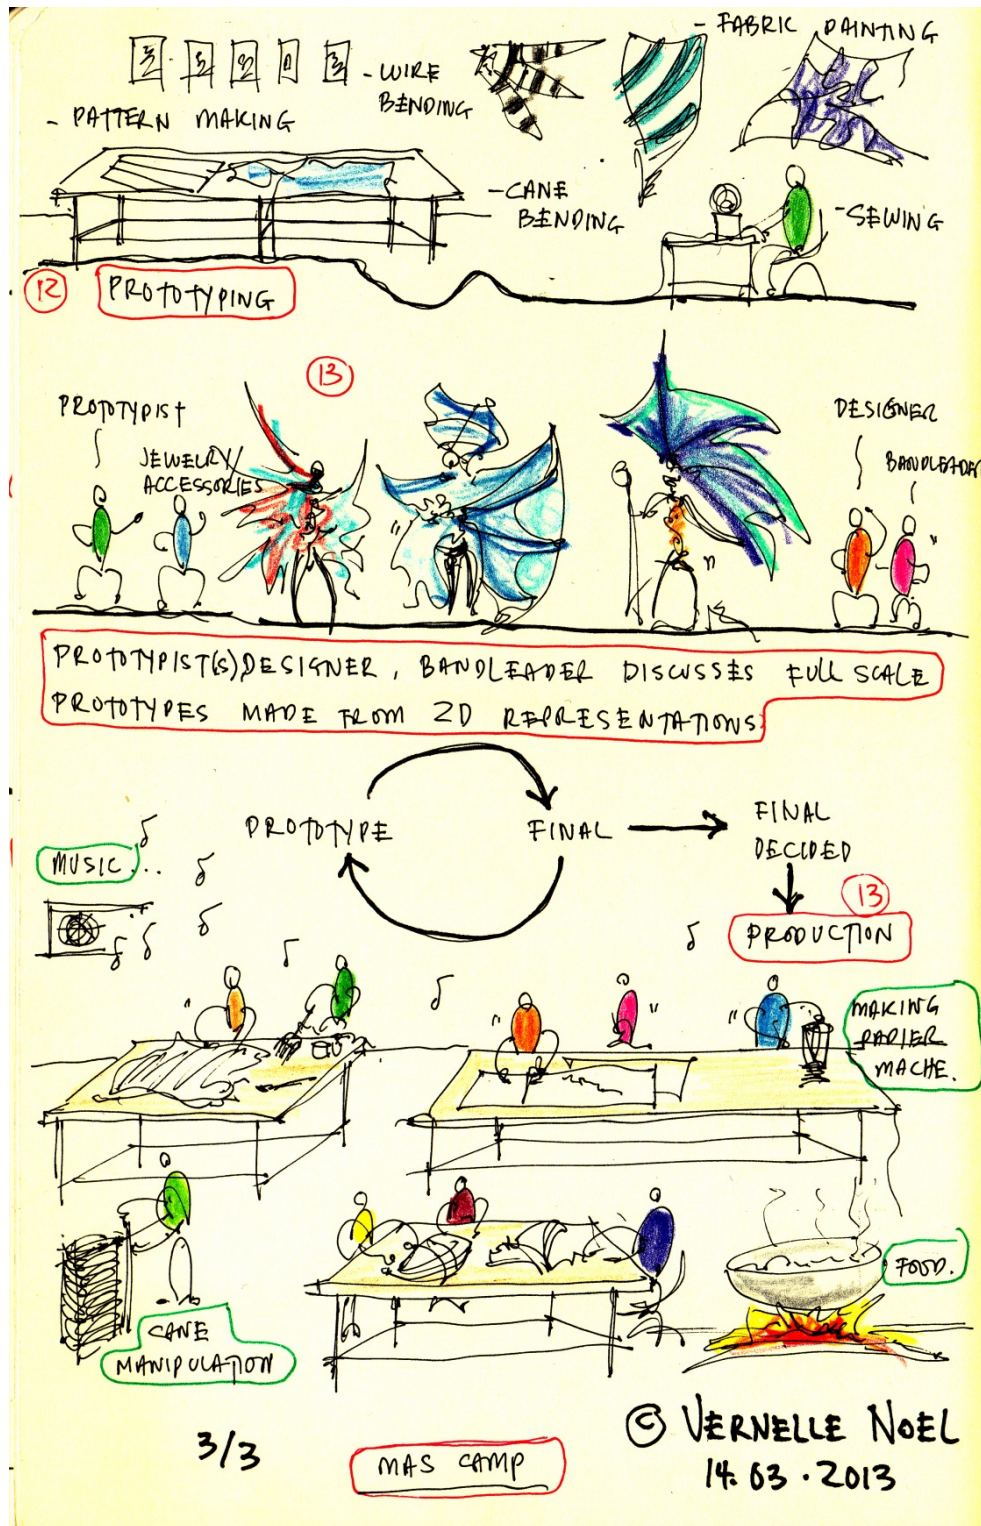 - FABRIC PAINTING
- WIRE
BENDING
- PATTERN MAKING
- CANE
BENDING
- SEWING
12
PROTOTYPING
13
PROTOTYPIST
JEWELRY/
ACCESSORIES
DESIGNER
BANDLEADER
PROTOTYPIST(S), DESIGNER, BANDLEADER DISCUSSES FULL SCALE
PROTOTYPES MADE FROM 2D REPRESENTATIONS.
PROTOTYPE
FINAL
FINAL
DECIDED
MUSIC...
13
PRODUCTION
MAKING
PAPIER
MACHE.
FOOD.
CANE
MANIPULATION
3/3
MAS CAMP
© VERNELLE NOEL
14.03.2013